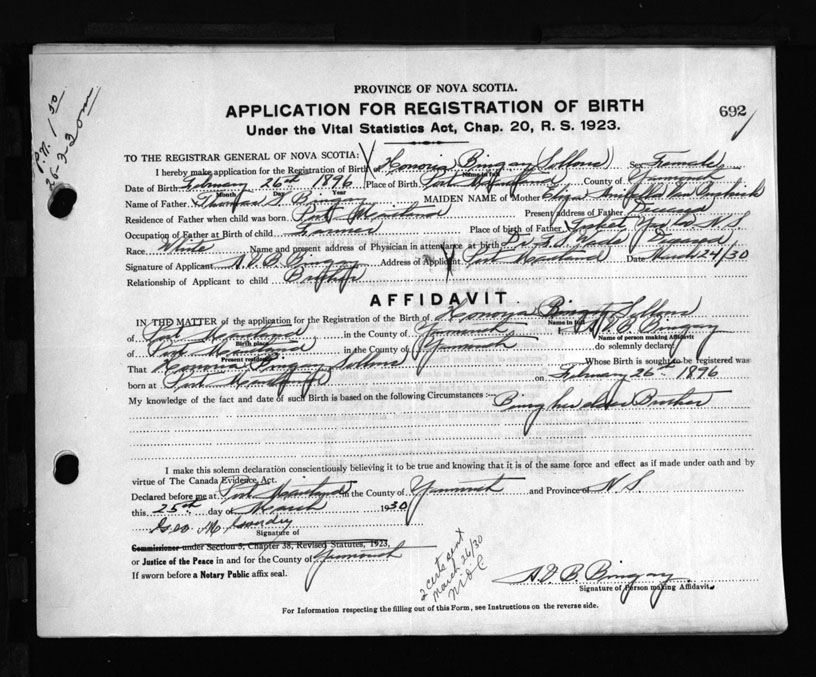 P.N. 1 50
26-3-30
PROVINCE OF NOVA SCOTIA.
APPLICATION FOR REGISTRATION OF BIRTH
692
Under the Vital Statistics Act, Chap. 20, R. S. 1923.
TO THE REGISTRAR GENERAL OF NOVA SCOTIA:
I hereby make application for the Registration of Birth of Honoria Bingay Sollows Sex Female
Name in full
Date of Birth February 26th 1896 Place of Birth Port Maitland County of Yarmouth
Month Day Year
Name of Father Thomas S Bingay MAIDEN NAME of Mother Eliza
Residence of Father when child was born Port Maitland Present address of Father Deceased
Occupation of Father at Birth of child Farmer Place of birth of Father Tusket Yar Co N.S.
Race White Name and present address of Physician in attendance at birth Dr Wade Digby
Signature of Applicant A V B Bingay Address of Applicant Port Maitland Date March 24/30
Relationship of Applicant to child Brother
AFFIDAVIT
IN THE MATTER of the application for the Registration of the Birth of Honoria Bingay Sollows
Name in full
of Port Maitland in the County of Yarmouth I A V B Bingay
Birth place Name of person making Affidavit
of Port Maitland in the County of Yarmouth do solemnly declare:
Present residence
That Honoria Bingay Sollows Whose Birth is sought to be registered was
born at Port Maitland on February 26th 1896
My knowledge of the fact and date of such Birth is based on the following Circumstances:— Being her elder Brother
I make this solemn declaration conscientiously believing it to be true and knowing that it is of the same force and effect as if made under oath and by
virtue of The Canada Evidence Act.
Declared before me at Port Maitland in the County of Yarmouth and Province of N.S.
this 25th day of March 1930
Geo. M.
Signature of
Commissioner under Section 5, Chapter 38, Revised Statutes, 1923,
or Justice of the Peace in and for the County of Yarmouth
If sworn before a Notary Public affix seal.
2 certs sent
March 26/30
A V B Bingay
Signature of Person making Affidavit.
For Information respecting the filling out of this Form, see Instructions on the reverse side.